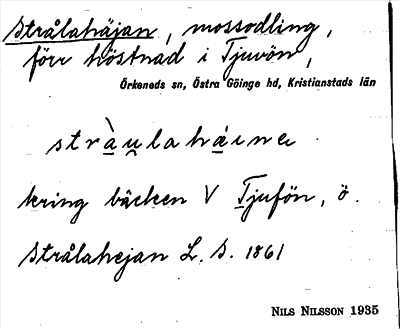 Strålahäjan, mossodling,
förr höstnad i Tjuvön,
Örkeneds sn, Östra Göinge hd, Kristianstads län
stràu̯lahái̯na
kring bäcken V Tjufön, ö.
Strålahejan L. S. 1861
NILS NILSSON 1935